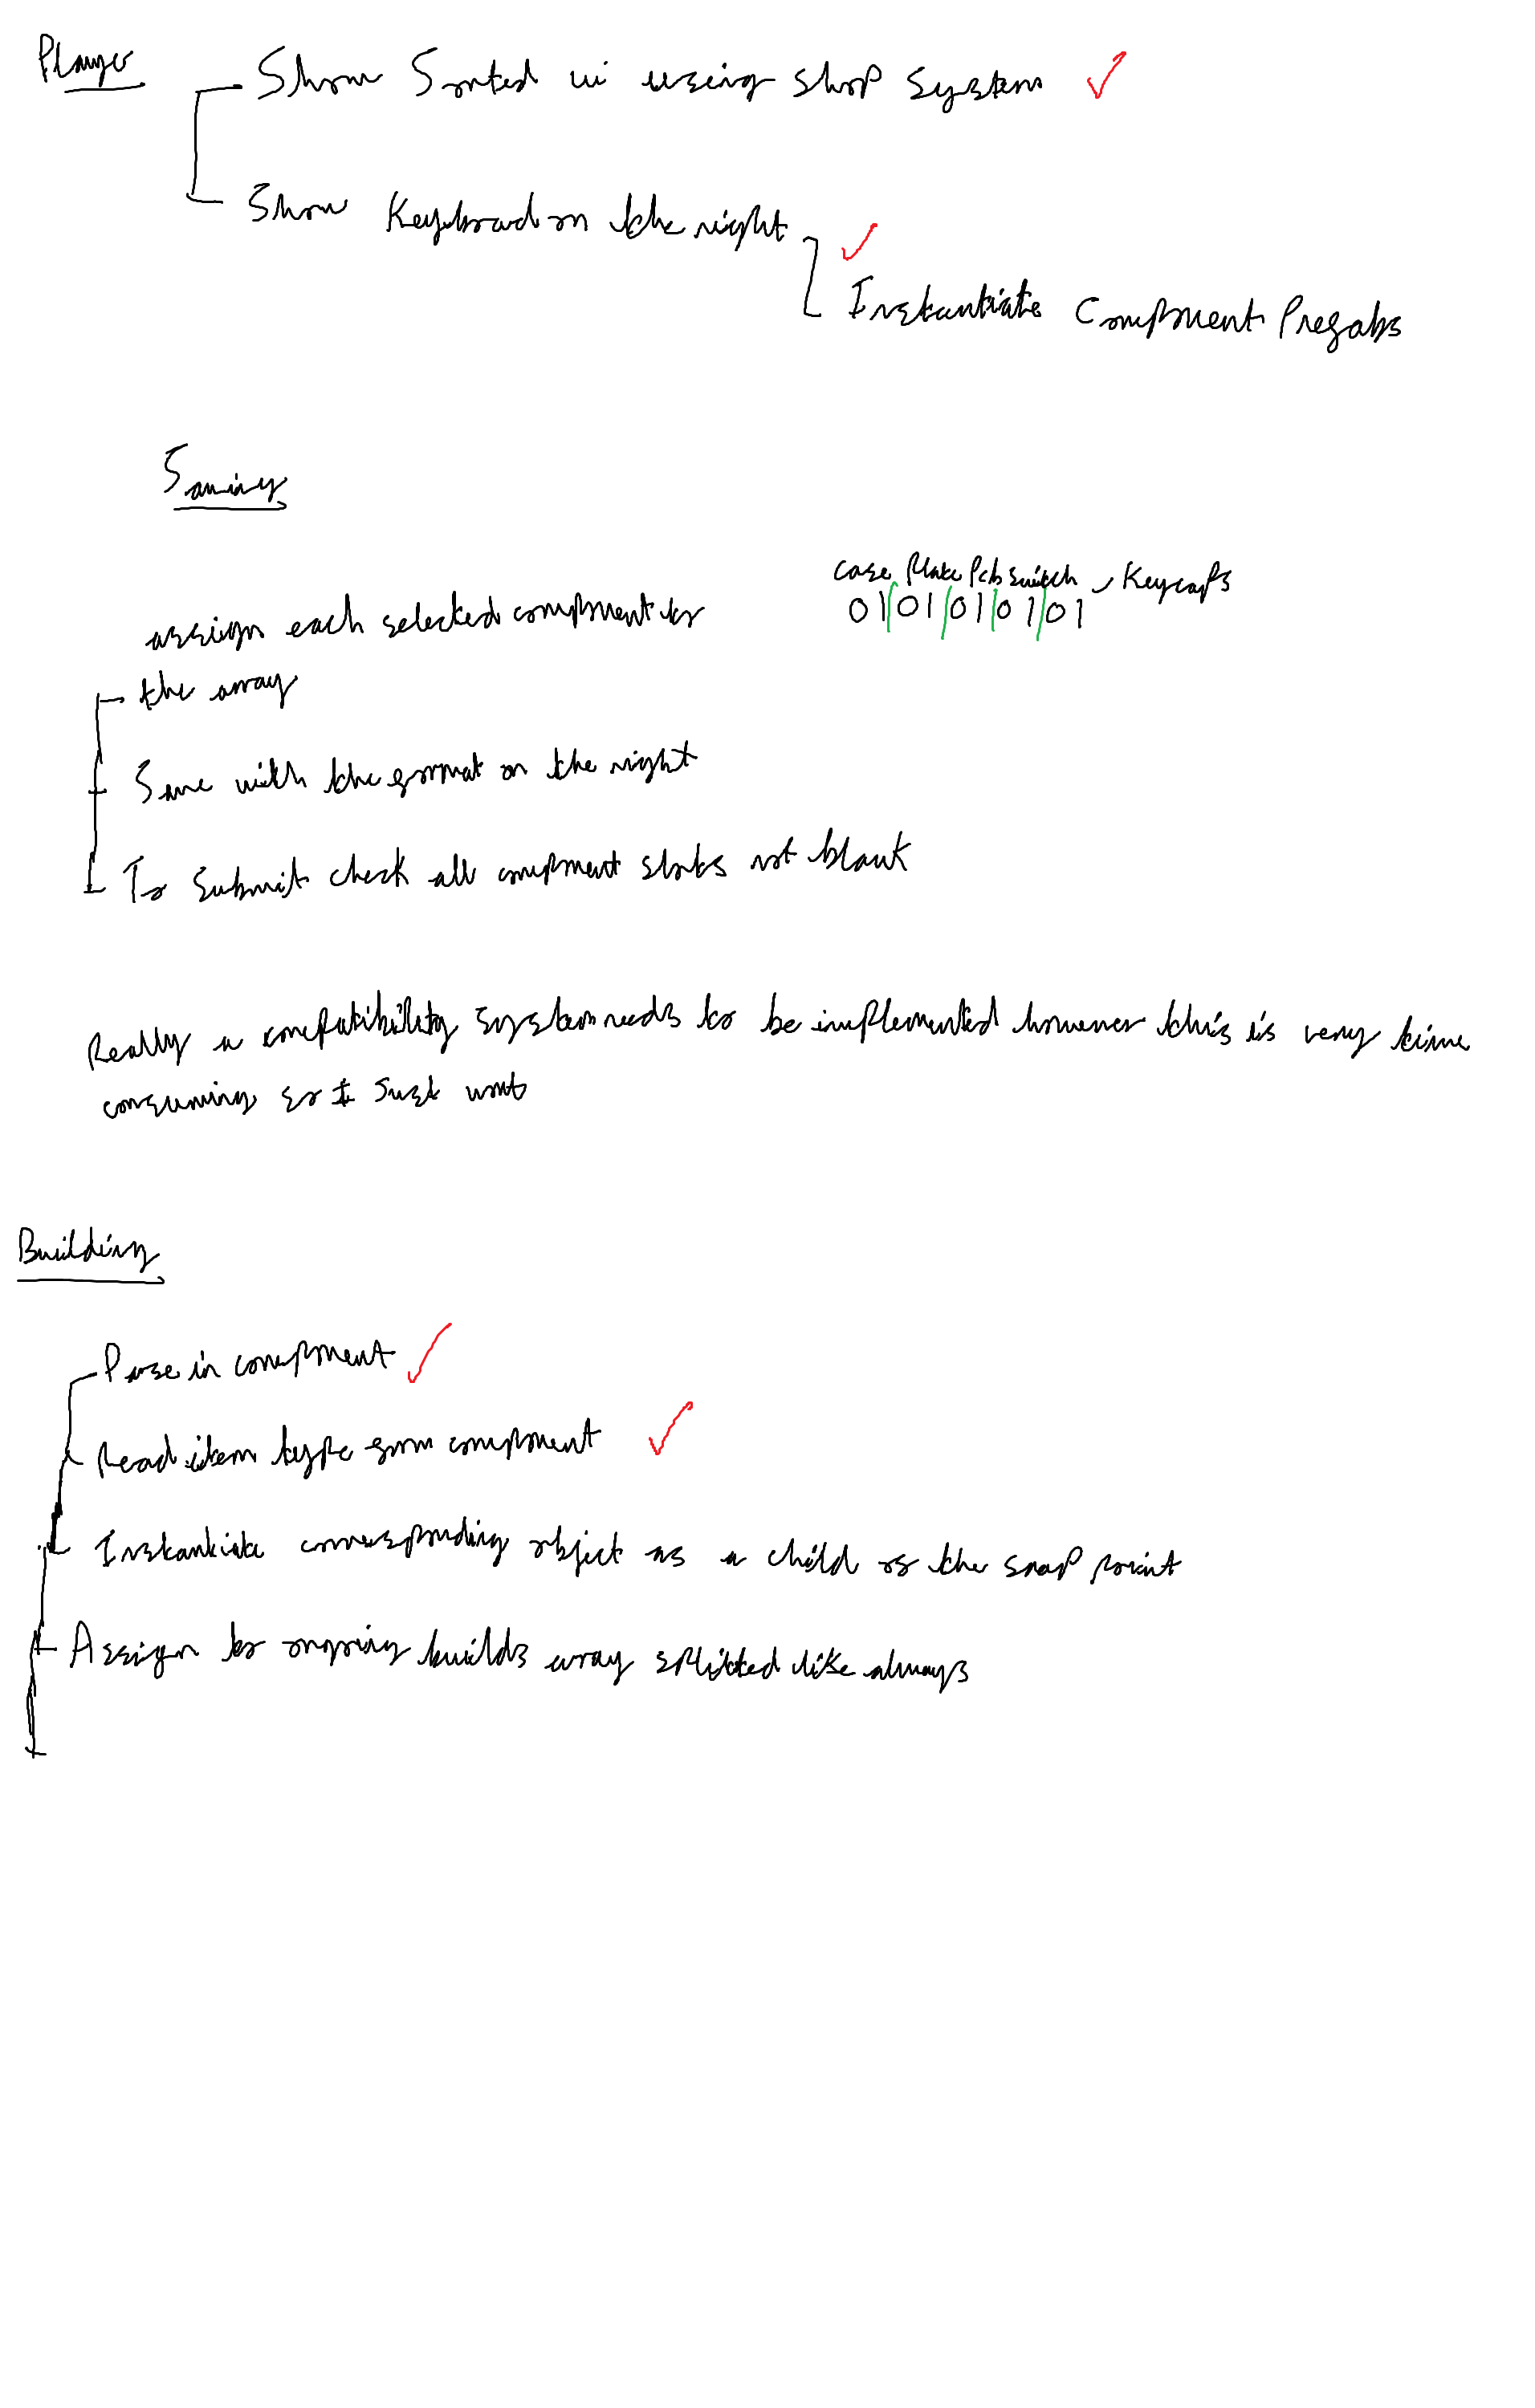 Player
Show Sorted ui using shop system
Show Keyboard on the right
Instantiate Component Prefabs
Saving
case Plate Pcb switch, Keycaps
01 01 01 01 01
assign each selected component to
the array
Save with the format on the right
To submit check all component slots not blank
Really a compatibility system needs to be implemented however this is very time
consuming so I just wont
Building
Parse in component
Read item type from component
Instantiate corresponding object as a child of the snap point
Assign to ongoing builds array splitted like always